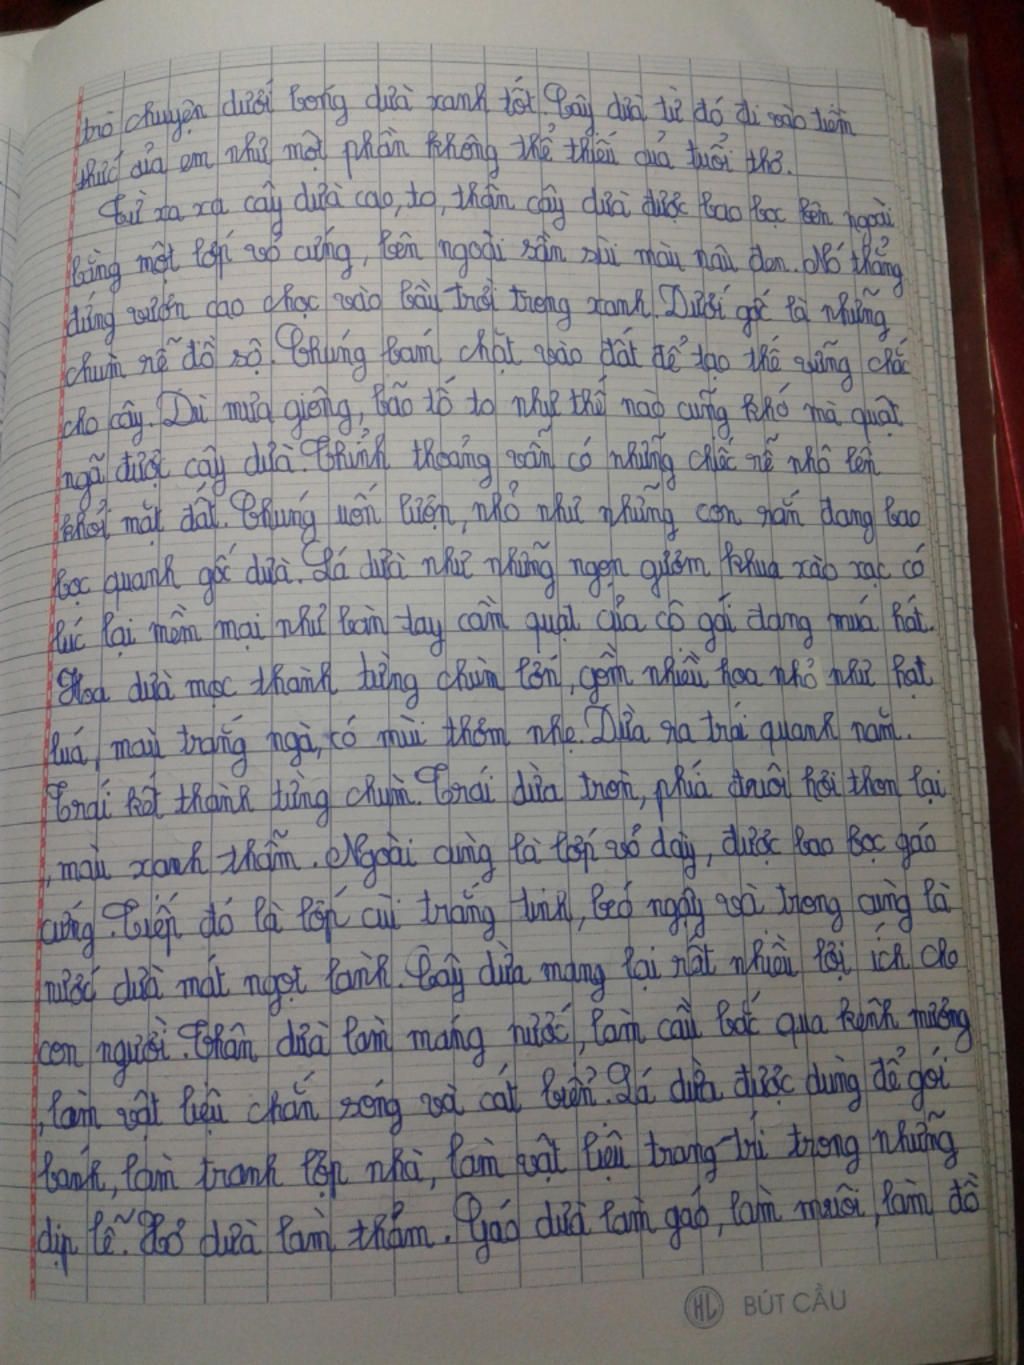 trò chuyện dưới bóng dừa xanh tốt. Cây dừa từ đó đi vào tiềm
thức của em như một phần không thể thiếu của tuổi thơ.
Từ xa xa cây dừa cao, to, thân cây dừa được bao bọc bên ngoài
bằng một lớp vỏ cứng, bên ngoài sần sùi màu nâu đen. Nó thẳng
đứng vươn cao chọc vào bầu trời trong xanh. Dưới gốc là những
chùm rễ đồ sộ. Chúng bám chặt vào đất để tạo thế vững chắc
cho cây. Dù mưa giông, bão tố to như thế nào cũng khó mà quật
ngã được cây dừa. Thỉnh thoảng vẫn có những chiếc rễ nhô lên
khỏi mặt đất. Chúng uốn lượn, nhỏ như những con rắn đang bao
bọc quanh gốc dừa. Lá dừa như những ngọn gươm khua xào xạc có
lúc lại mềm mại như bàn tay cầm quạt của cô gái đang múa hát.
Hoa dừa mọc thành từng chùm lớn, gồm nhiều hoa nhỏ như hạt
luá, màu trắng ngà, có mùi thơm nhẹ. Dừa ra trái quanh năm.
Trái kết thành từng chùm. Trái dừa tròn, phía đuôi hơi thon lại
, màu xanh thẫm. Ngoài cùng là lớp vỏ dày, được bao bọc gáo
cứng. Tiếp đó là lớp cùi trắng tinh, béo ngậy và trong cùng là
nước dừa mát ngọt lành. Cây dừa mang lại rất nhiều lợi ích cho
con người. Thân dừa làm máng nước, làm cầu bắc qua kênh mương
, làm vật liệu chắn sóng và cát biển. Lá dừa được dùng để gói
bánh, làm tranh lợp nhà, làm vật liệu trang trí trong những
dịp lễ. Xơ dừa làm thảm. Gáo dừa làm gáo, làm muôi, làm đồ
HL BÚT CẦU